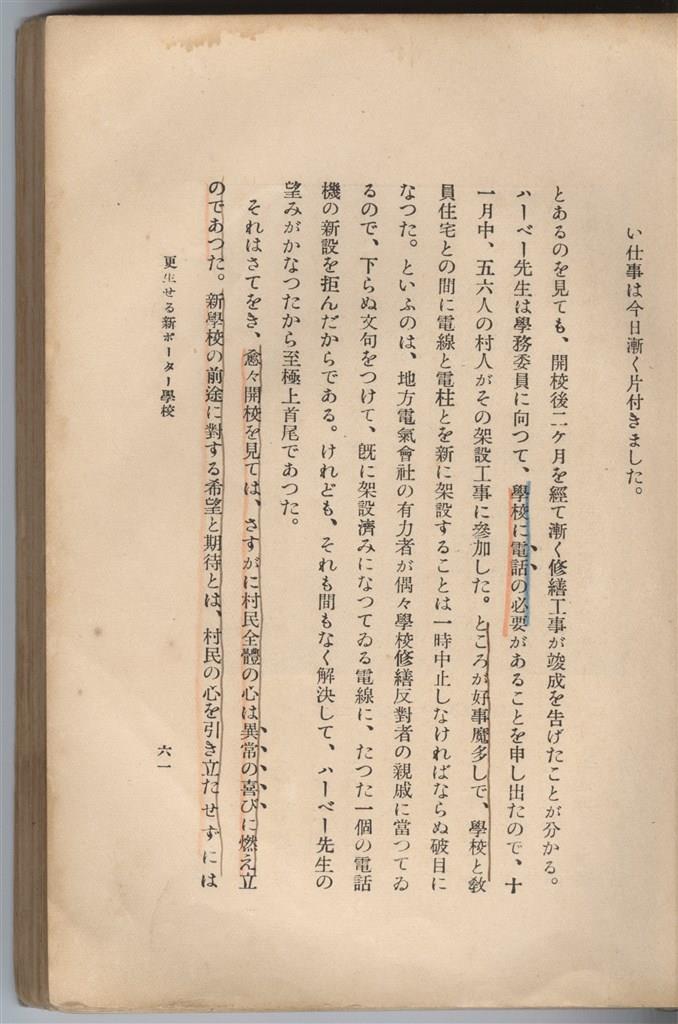 い仕事は今日漸く片付きました。
とあるのを見ても、開校後二ケ月を經て漸く修繕工事が竣成を告げたことが分かる。
ハーベー先生は學務委員に向つて、學校に電話の必要があることを申し出たので、十
一月中、五六人の村人がその架設工事に參加した。ところが好事魔多しで、學校と敎
員住宅との間に電線と電柱とを新に架設することは一時中止しなければならぬ破目に
なつた。といふのは、地方電氣會社の有力者が偶々學校修繕反對者の親戚に當つてゐ
るので、下らぬ文句をつけて、旣に架設濟みになつてゐる電線に、たつた一個の電話
機の新設を拒んだからである。けれども、それも間もなく解決して、ハーベー先生の
望みがかなつたから至極上首尾であつた。
それはさておき、愈々開校を見ては、さすがに村民全體の心は異常の喜びに燃え立
のであつた。新學校の前途に對する希望と期待とは、村民の心を引き立たせずには
更生せる新ポーター學校
六一